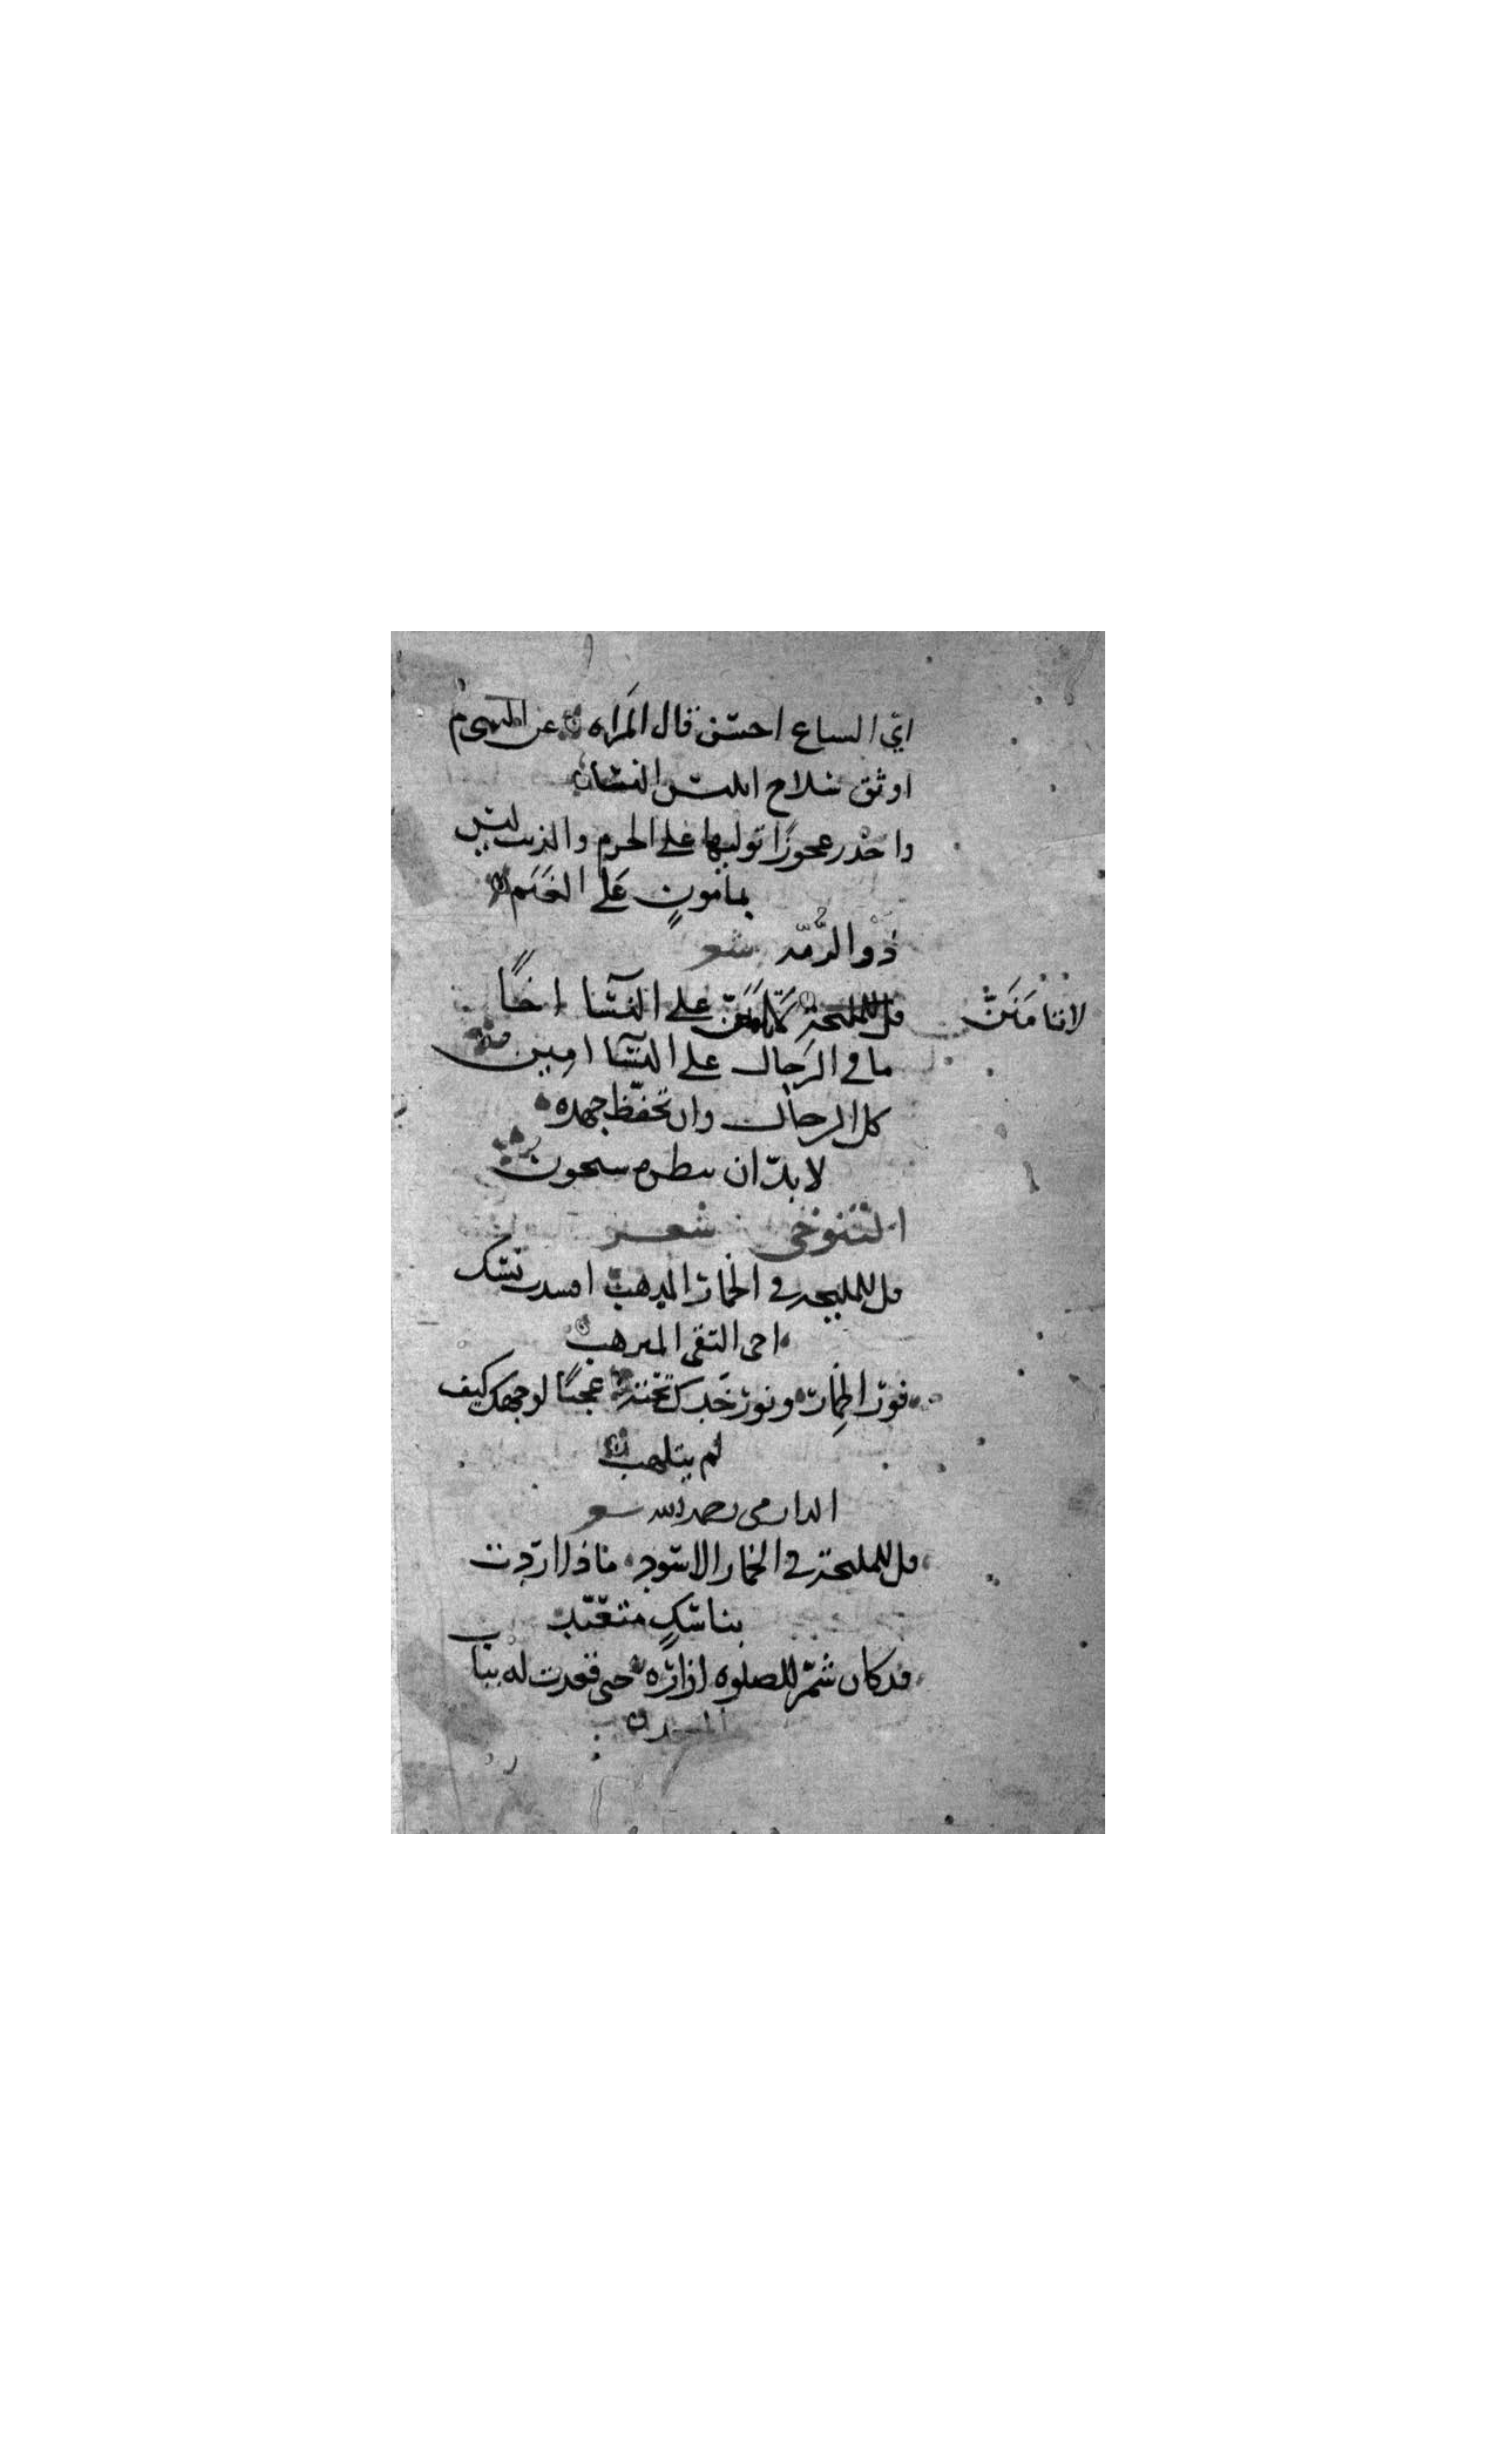 ايّ السباع احسن قال المراه عن الهيثم
اوثق سلاح ابليس النساء
واحذر عجوزًا توليها على الحرم والذيب ليس
بمامونٍ على الغنم
ذو الرّمّه شعر
لا تامننّ
على النسا اخًا
ما في الرجال على النسا امين
كل الرجال وان تحفّظ جهده
لا بدّ ان بنظره سيخون
التنوخي شعر
قل للمليحه في الخمار المذهب افسدت نسك
اخي التقى المترهب
نور الخمار ونور خدك تحته عجبًا لوجهك كيف
لم يتلهب
الدارمي رحمه الله شعر
قل للمليحة في الخمار الاسود ماذا اردت
بناسكٍ متعبّد
قد كان شمّر للصلوه ازاره حتى قعدت له بباب
المسجد